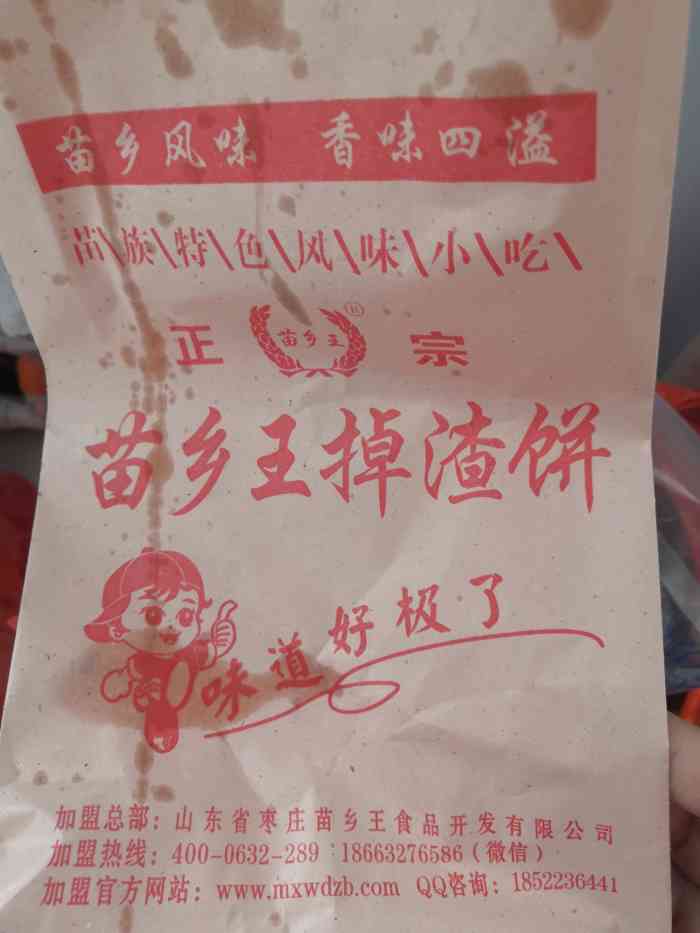 苗乡风味 香味四溢
苗\族\特\色\风\味\小\吃\
正 苗乡王® 宗
苗乡王掉渣饼
味道好极了
加盟总部：山东省枣庄苗乡王食品开发有限公司
加盟热线：400-0632-289 18663276586（微信）
加盟官方网站：www.mxwdzb.com QQ咨询：1852236441